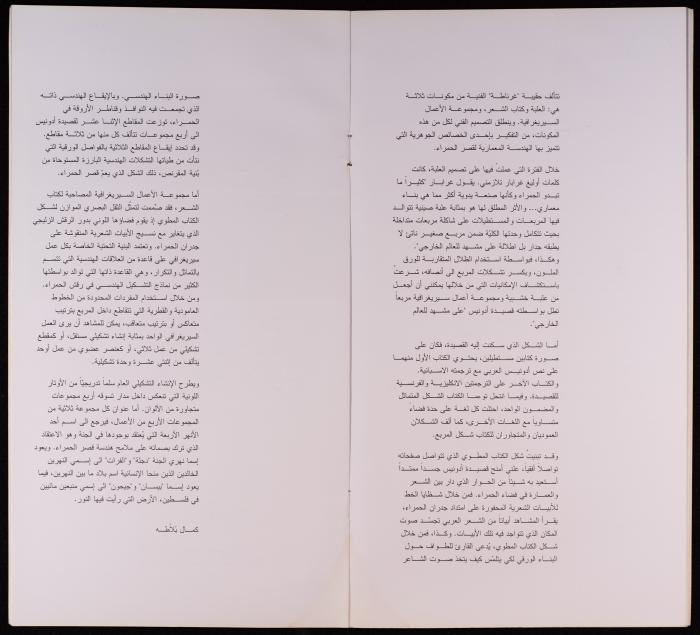 تتألف حقيبة "غرناطة" الفنية من مكونات ثلاثة
هي: العلبة وكتاب الشعر، ومجموعة الأعمال
السيريغرافية. وينطلق التصميم الفني لكل من هذه
المكونات، من التفكير بإحدى الخصائص الجوهرية التي
تتميز بها الهندسة المعمارية لقصر الحمراء.
خلال الفترة التي عملت فيها على تصميم العلبة، كانت
كلمات أوليغ غرابار تلازمني. يقول غرابار "كثيراً ما
تبدو الحمراء وكأنها صنعة يدوية أكثر مما هي بناء
معماري... والأثر المطلق لها هو بمثابة علبة صينية تتوالد
فيها المربعات والمستطيلات على شاكلة مربعات متداخلة
بحيث تتكامل وحدتها الكليّة ضمن مربع صغير ناتئ لا
يطبقه جدار بل اطلالة على مشهد للعالم الخارجي".
وهكذا، فبواسطة استخدام الظلال المتقاربة للورق
الملون، وبكسر تشكلات المربع الى أنصافه، شرعت
باستكشاف الإمكانيات التي من خلالها يمكنني أن أجعل
من علبة خشبية ومجموعة أعمال سيريغرافية مربعاً
تطل بواسطته قصيدة أدونيس "على مشهد للعالم
الخارجي".
أما الشكل الذي سكنت إليه القصيدة، فكان على
صورة كتابين مستطيلين، يحتوي الكتاب الأول منهما
على نص أدونيس العربي مع ترجمته الاسبانية.
والكتاب الآخر على الترجمتين الانكليزية والفرنسية
للقصيدة. وفيما انتحل توءما الكتاب الشكل المتماثل
والمضمون الواحد، احتلت كل لغة على حدة فضاءً
متساوياً مع اللغات الأخرى، كما ألف الشكلان
العموديان والمتجاوران للكتاب شكل المربع.
وقد تبنيت شكل الكتاب المطوي الذي تتواصل صفحاته
تواصلاً أفقياً، علني أمنح قصيدة أدونيس جسداً ممتداً
أستعيد به شيئاً من الحوار الذي دار بين الشعر
والعمارة في فضاء الحمراء. فمن خلال شظايا الخط
للأبيات الشعرية المحفورة على امتداد جدران الحمراء،
يقرأ المشاهد أبياتاً من الشعر العربي تجسّد صوت
المكان الذي تتواجد فيه تلك الأبيات. وكذا، فمن خلال
شكل الكتاب المطوي، يُدعى القارئ للطواف حول
البناء الورقي لكي يتلمّس كيف يتخذ صوت الشاعر
صورة البناء الهندسي. وبالإيقاع الهندسي ذاته
الذي تجمعت فيه النوافذ وقناطر الأروقة في
الحمراء، توزعت المقاطع الإثنا عشر لقصيدة أدونيس
الى أربع مجموعات تتألف كل منها من ثلاثة مقاطع.
وقد تحدد إيقاع المقاطع الثلاثية بالفواصل الورقية التي
نتأت من طياتها التشكلات الهندسية البارزة المستوحاة من
بُنية المقرنص، ذلك الشكل الذي يعمّ قصر الحمراء.
أما مجموعة الأعمال السيريغرافية المصاحبة لكتاب
الشعر، فقد صمّمت لتمثّل الثقل البصري الموازن لشكل
الكتاب المطوي إذ يقوم فضاؤها اللوني بدور الرقش الزليجي
الذي يتغاير مع نسيج الأبيات الشعرية المنقوشة على
جدران الحمراء. وتعتمد البنية التحتية الخاصة بكل عمل
سيريغرافي على قاعدة من العلاقات الهندسية التي تتسم
بالتماثل والتكرار، وهي القاعدة ذاتها التي توالد بواسطتها
الكثير من نماذج التشكيل الهندسي في رقش الحمراء.
ومن خلال استخدام المفردات المحدودة من الخطوط
العامودية والقطرية التي تتقاطع داخل المربع بترتيب
متعاكس أو بترتيب متعاقب، يمكن للمشاهد أن يرى العمل
السيريغرافي الواحد بمثابة إنشاء تشكيلي مستقل، أو كمقطع
تشكيلي من عمل ثلاثي، أو كعنصر عضوي من عمل أوحد
يتألف من إثنتي عشرة وحدة تشكيلية.
ويطرح الإنشاء التشكيلي العام سلما تدريجيّا من الأوتار
اللونية التي تنعكس داخل مدار تسوقه أربع مجموعات
متجاورة من الألوان. أما عنوان كل مجموعة ثلاثية من
المجموعات الأربع من الأعمال، فيرجع الى اسم أحد
الأنهر الأربعة التي يُعتقد بوجودها في الجنة وهو الاعتقاد
الذي ترك بصماته على ملامح هندسة قصر الحمراء. ويعود
إسما نهري الجنة "دجلة" و"الفرات" الى إسمي النهرين
الخالدين الذين منحا الإنسانية اسم بلاد ما بين النهرين، فيما
يعود إسما "بيسان" و"جيحون" الى إسمي منبعين مائيين
في فلسطين، الأرض التي رأيت فيها النور.
كمال بُلاطه